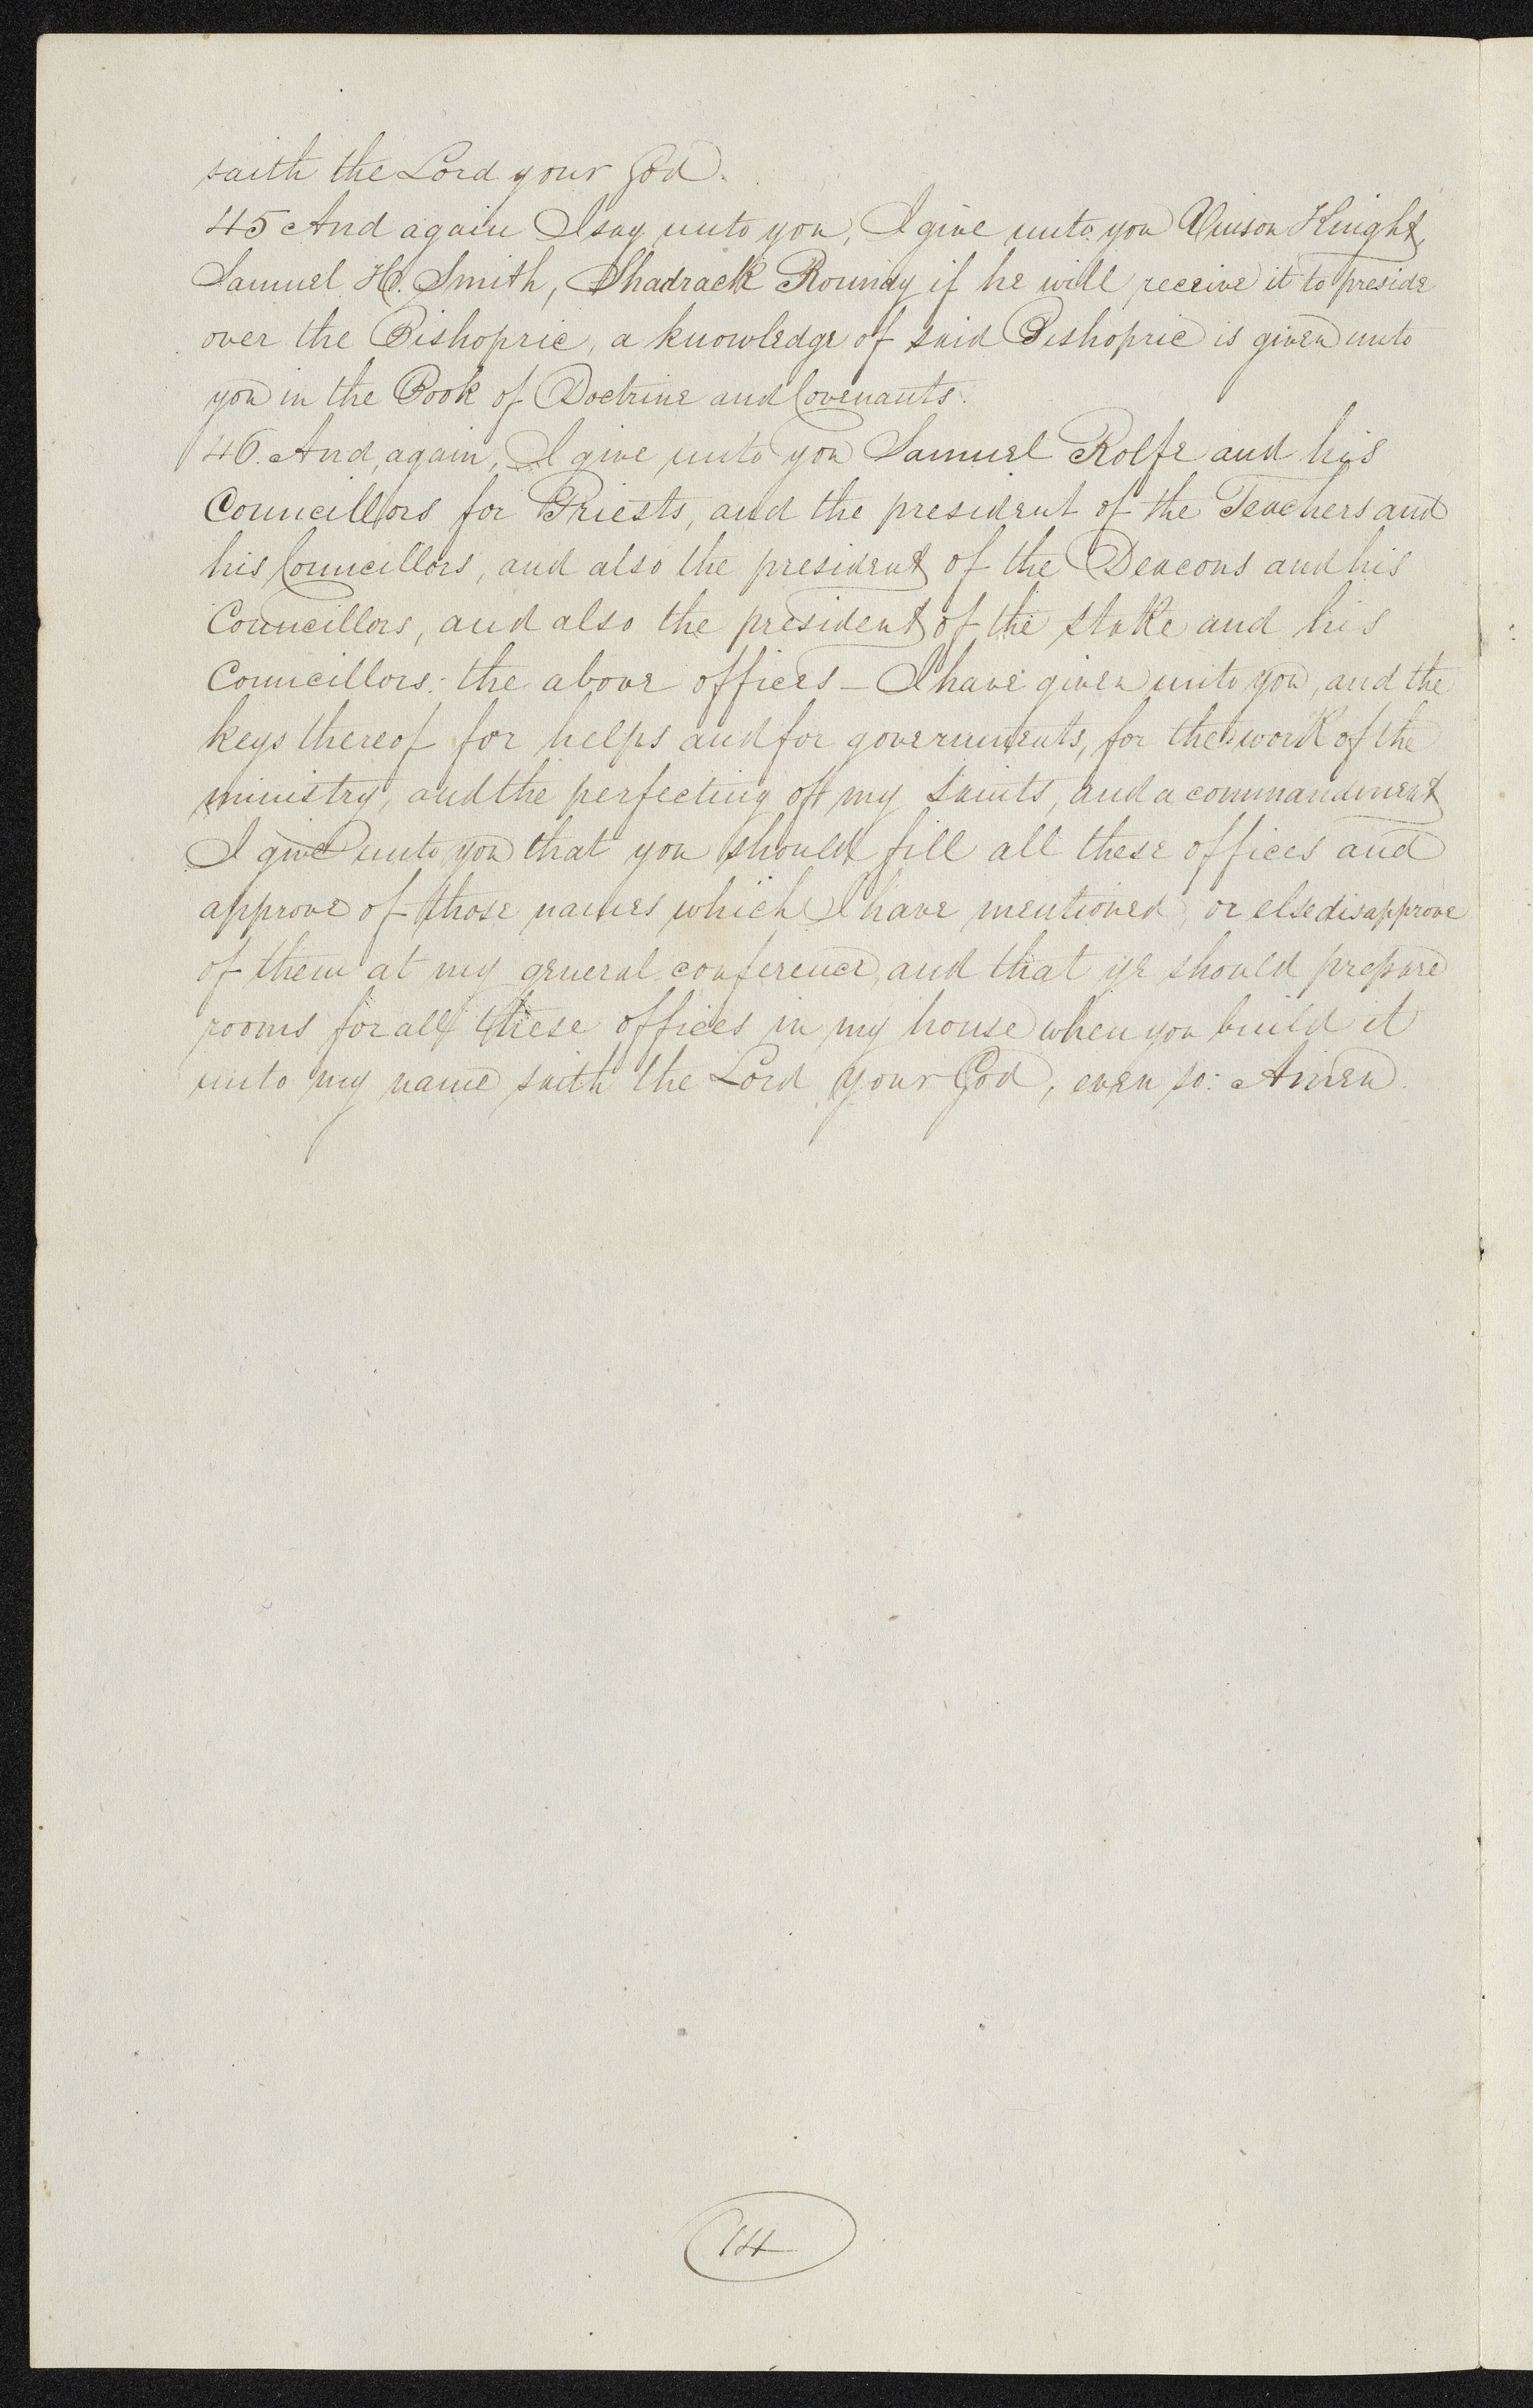 saith the Lord your God.
45 And again I say unto you, I give unto you Vinson Knight,
Samuel H. Smith, Shadrack Roundy if he will receive it to preside
over the Bishopric, a knowledge of said Bishopric is given unto
you in the Book of Doctrine and Covenants.
46. And, again, I give unto you Samuel Rolfe and his
Councillors for Priests, and the president of the Teachers and
his Councillors, and also the president of the Deacons and his
Councillors, and also the president of the stake and his
Councillors: the above offices — I have given unto you, and the
keys thereof for helps and for governments, for the work of the
ministry, and the perfecting of my saints, and a commandment
I give unto you that you should fill all these offices and
approve of those names which I have mentioned, or else disapprove
of them at my general conference, and that ye should prepare
rooms for all these offices in my house when you build it
unto my name saith the Lord your God, even so: Amen.
14